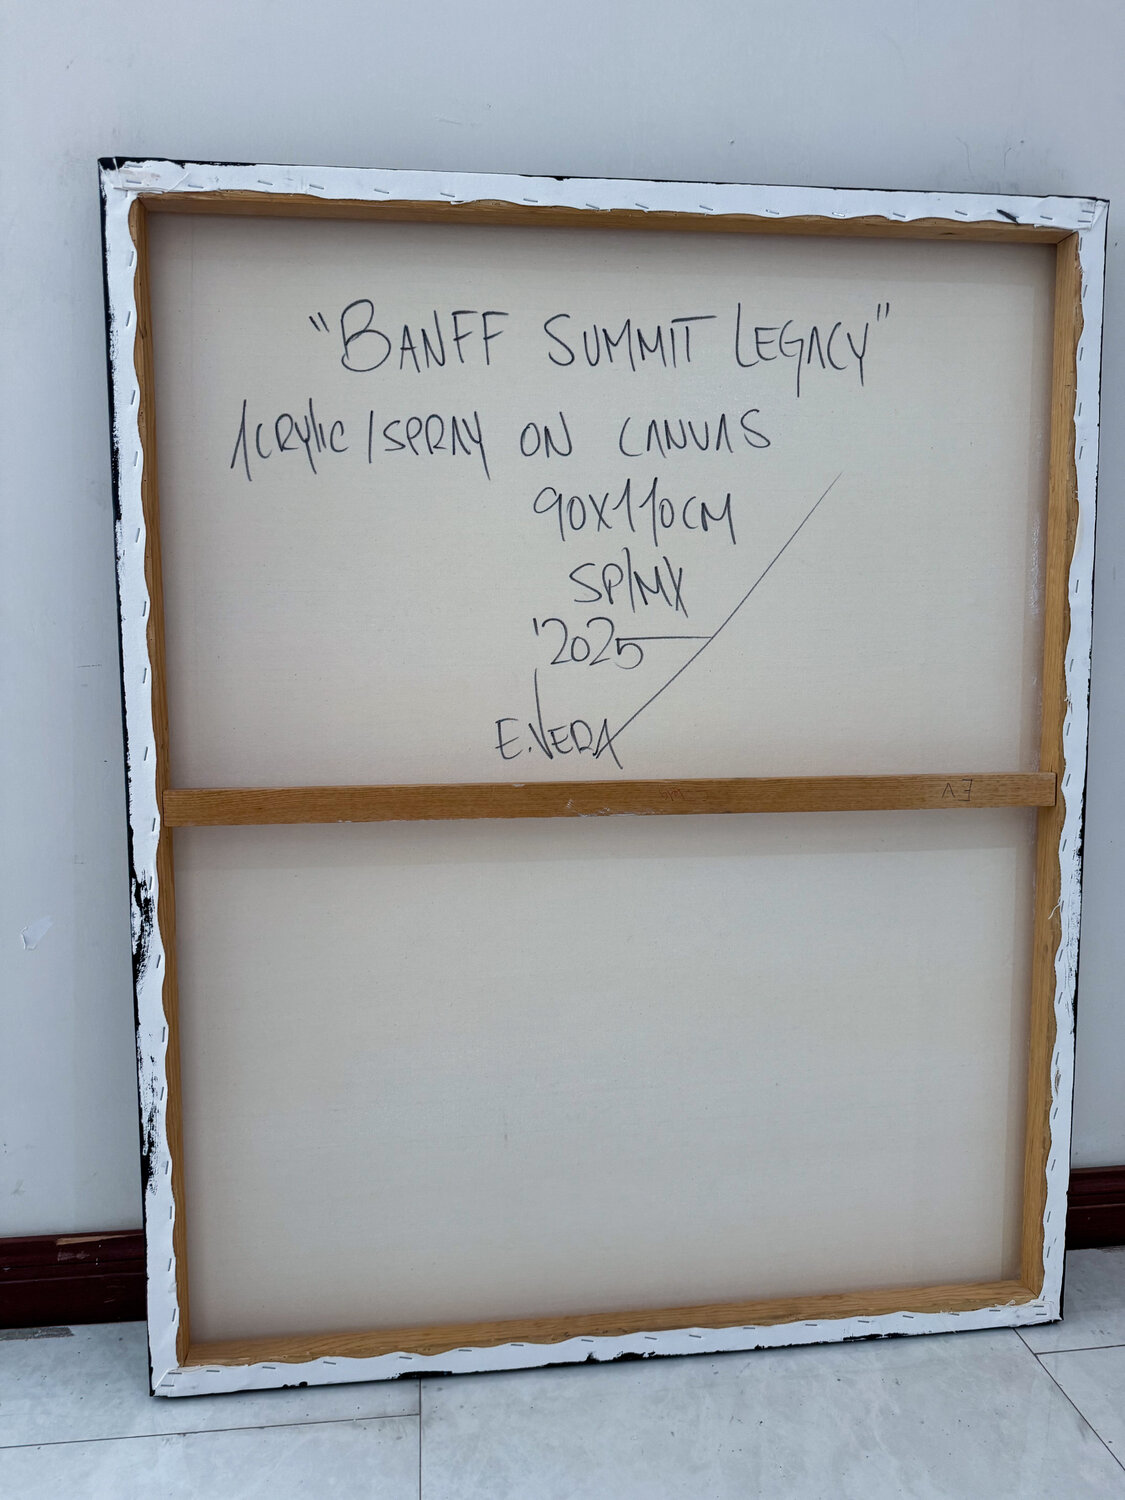 "BANFF SUMMIT LEGACY"
ACRYlIC / SPRAY ON CANVAS
90X110CM
SP/MX
'2025
E.VERA
EV